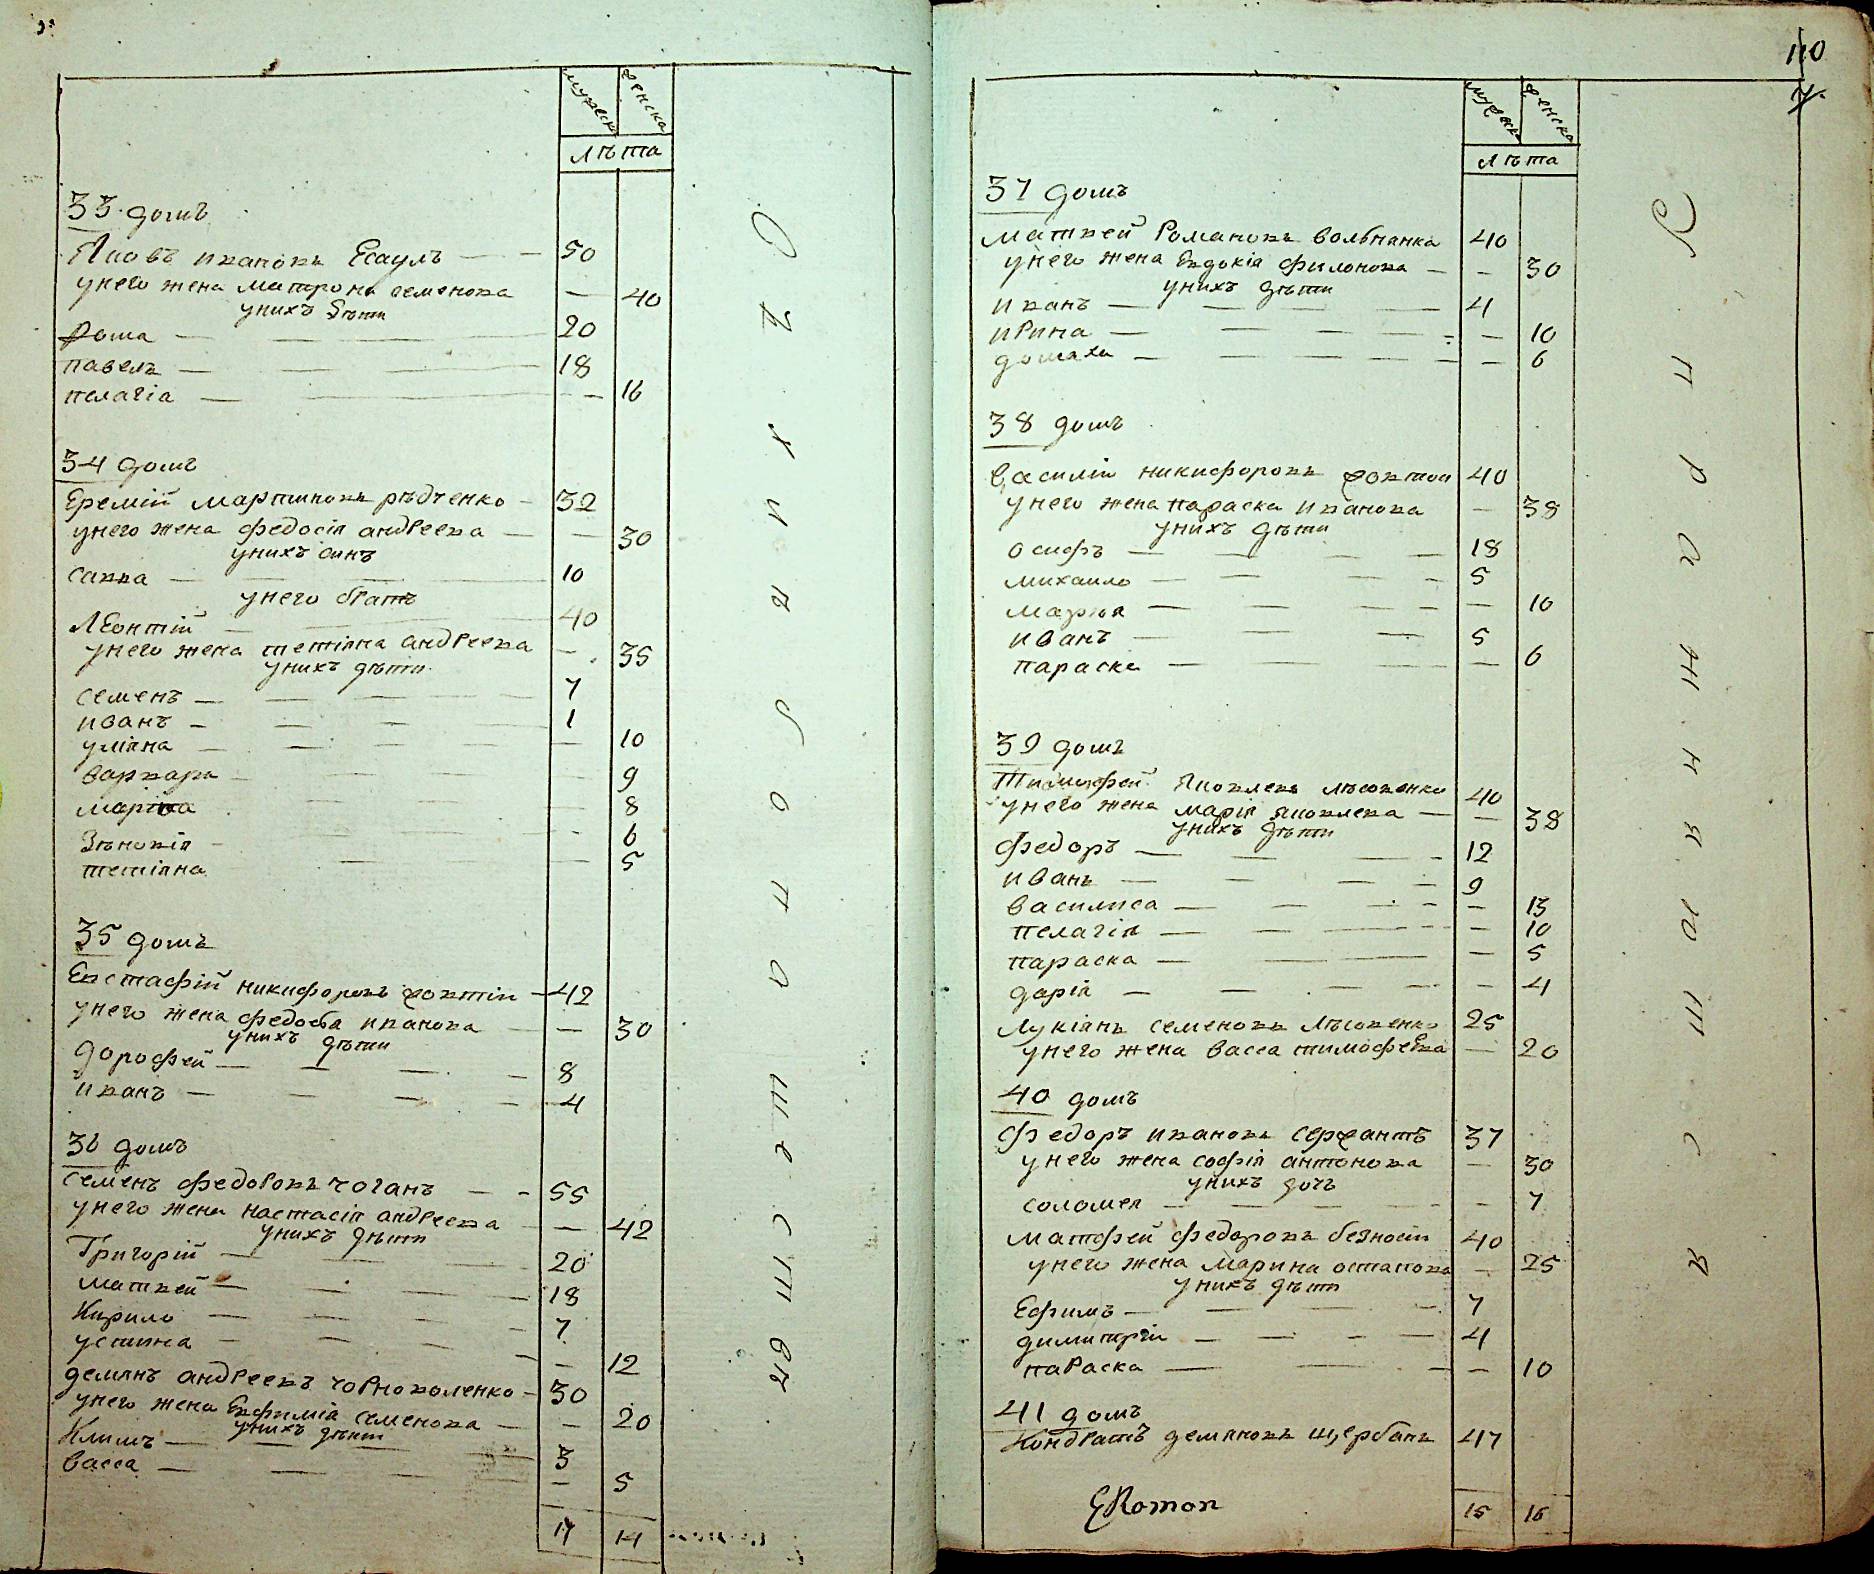 мужеска женска
лѣта
33 домъ
Яковъ ивановъ Есаулъ — — 50
унего жена матрона семенова — 40
унихъ дѣти
Фома — 20
павелъ — 18
пелагіа — — 16
34 домъ
Еремій мартиновъ рѣдченко — 32
унего жена федосія андреева — — 30
унихъ синъ
савва — 10
унего братъ
Леонтій — 40
унего жена тетіяна андреева — 35
унихъ дѣти
семенъ — 7
иванъ — 1
уліяна — — 10
варвара — — 9
марина — 8
Зѣновія — — 6
тетіяна — — 5
35 домъ
Евстафій никифоровъ жовтій — 42
унего жена федосіа иванова — — 30
унихъ дѣти
дорофей — 8
иванъ — 4
36 домъ
семенъ федоровъ чоганъ — — 55
унего жена настасія андреева — — 42
унихъ дѣти
Григорій — 20
матвей — 18
Кирило — 7
устина — — 12
демянъ андреевъ чорноволенко — 30
унего жена Евфимія семенова — — 20
унихъ дѣти
Климъ — 3
васса — — 5
17 14
С Е Л И В Ѕ О П О Ш Е С Т В
110
мужеска женска
лѣта
37 домъ
матвей Романовъ волбнянка 40
унего жена Евдокіа филонова — — 30
унихъ дѣти
иванъ — 4
ирина — — 10
домаха — — 6
38 домъ
василій никифоровъ жовтій 40
унего жена параска иванова — 38
унихъ дѣти
осифъ — 18
михаило — 5
маріа — — 10
иванъ — 5
параска — — 6
39 домъ
Тимофей Яковлевъ лѣсовенко 40
унего жена марія яковлева — — 38
унихъ дѣти
федоръ — 12
иванъ — 9
василиса — — 13
пелагія — — 10
параска — — 5
дарія — — 4
Лукіянъ семеновъ Лѣсовенко 25
унего жена васса тимофеева — 20
40 домъ
федоръ ивановъ сержантъ 37
унего жена софія антонова — 30
унихъ дочъ
соломея — — 7
матфей федоровъ безносій 40
унего жена марина остапова — 25
унихъ дѣти
Ефимъ — 7
димитрій — 4
параска — — 10
41 домъ
Кондратъ демяновъ щербанъ 47
15 16
У П Р А Ж Н Я Ю Т С Я